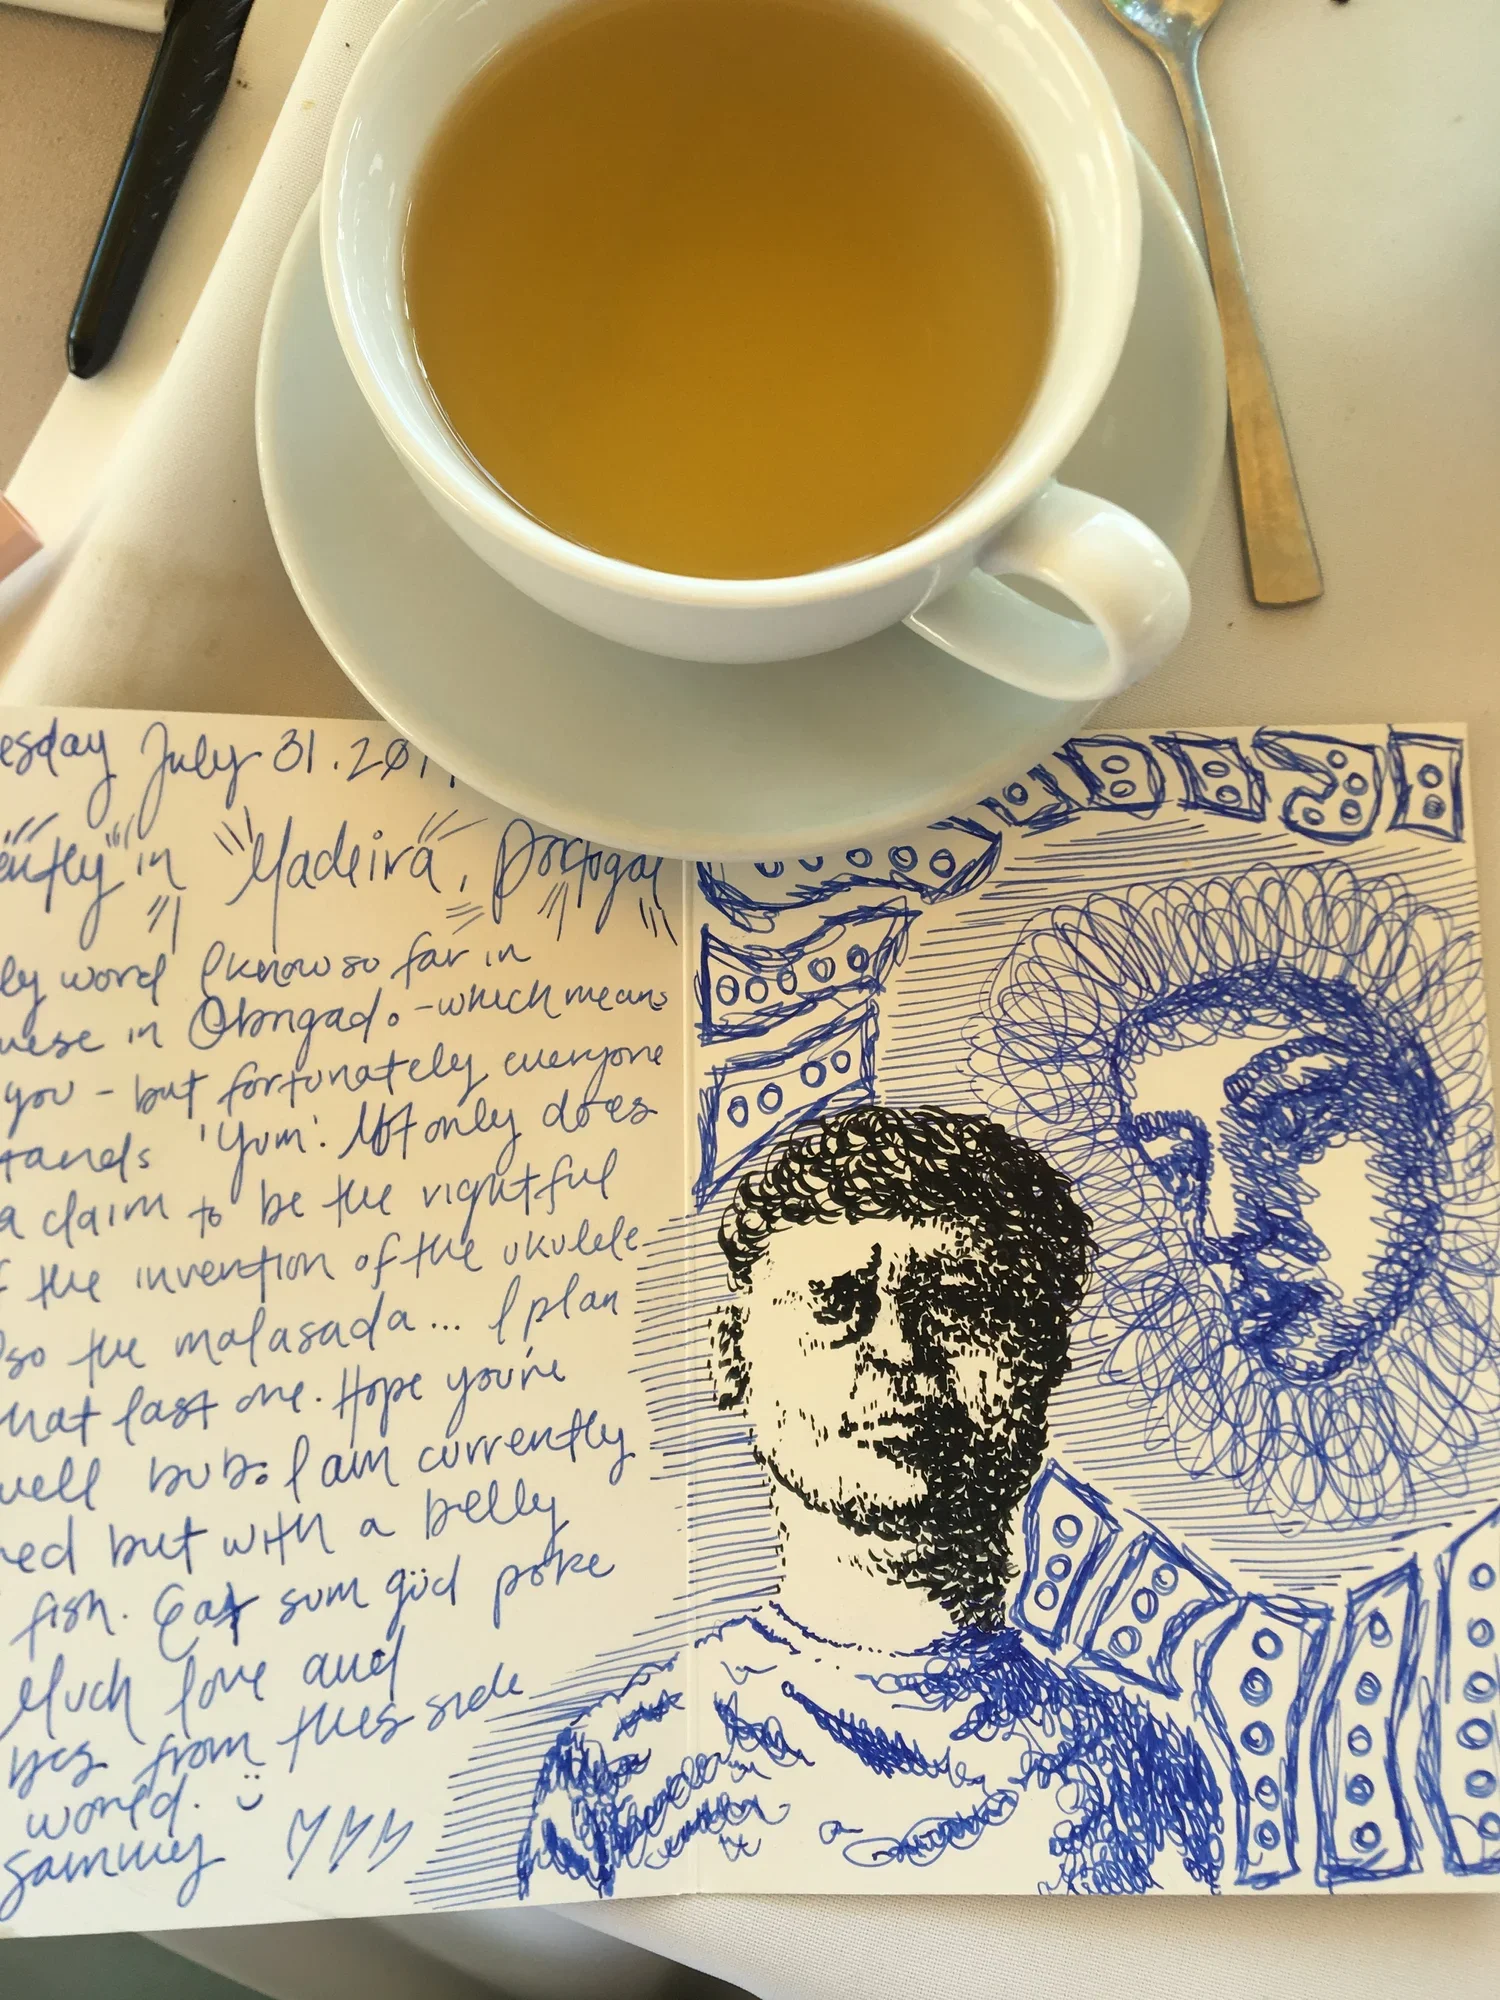 esday July 31.201
ently" in "Madeira, Portugal
ly word I know so far in
uese in Obrigado - which means
you - but fortunately everyone
tands 'Yum'. Not only does
a claim to be the rightful
f the invention of the ukulele
lso the malasada... I plan
hat last one. Hope you're
well bub. I am currently
red but with a belly
fish. Eat sum güd poke
Much love and
yes from this side
world. :)
Sammy